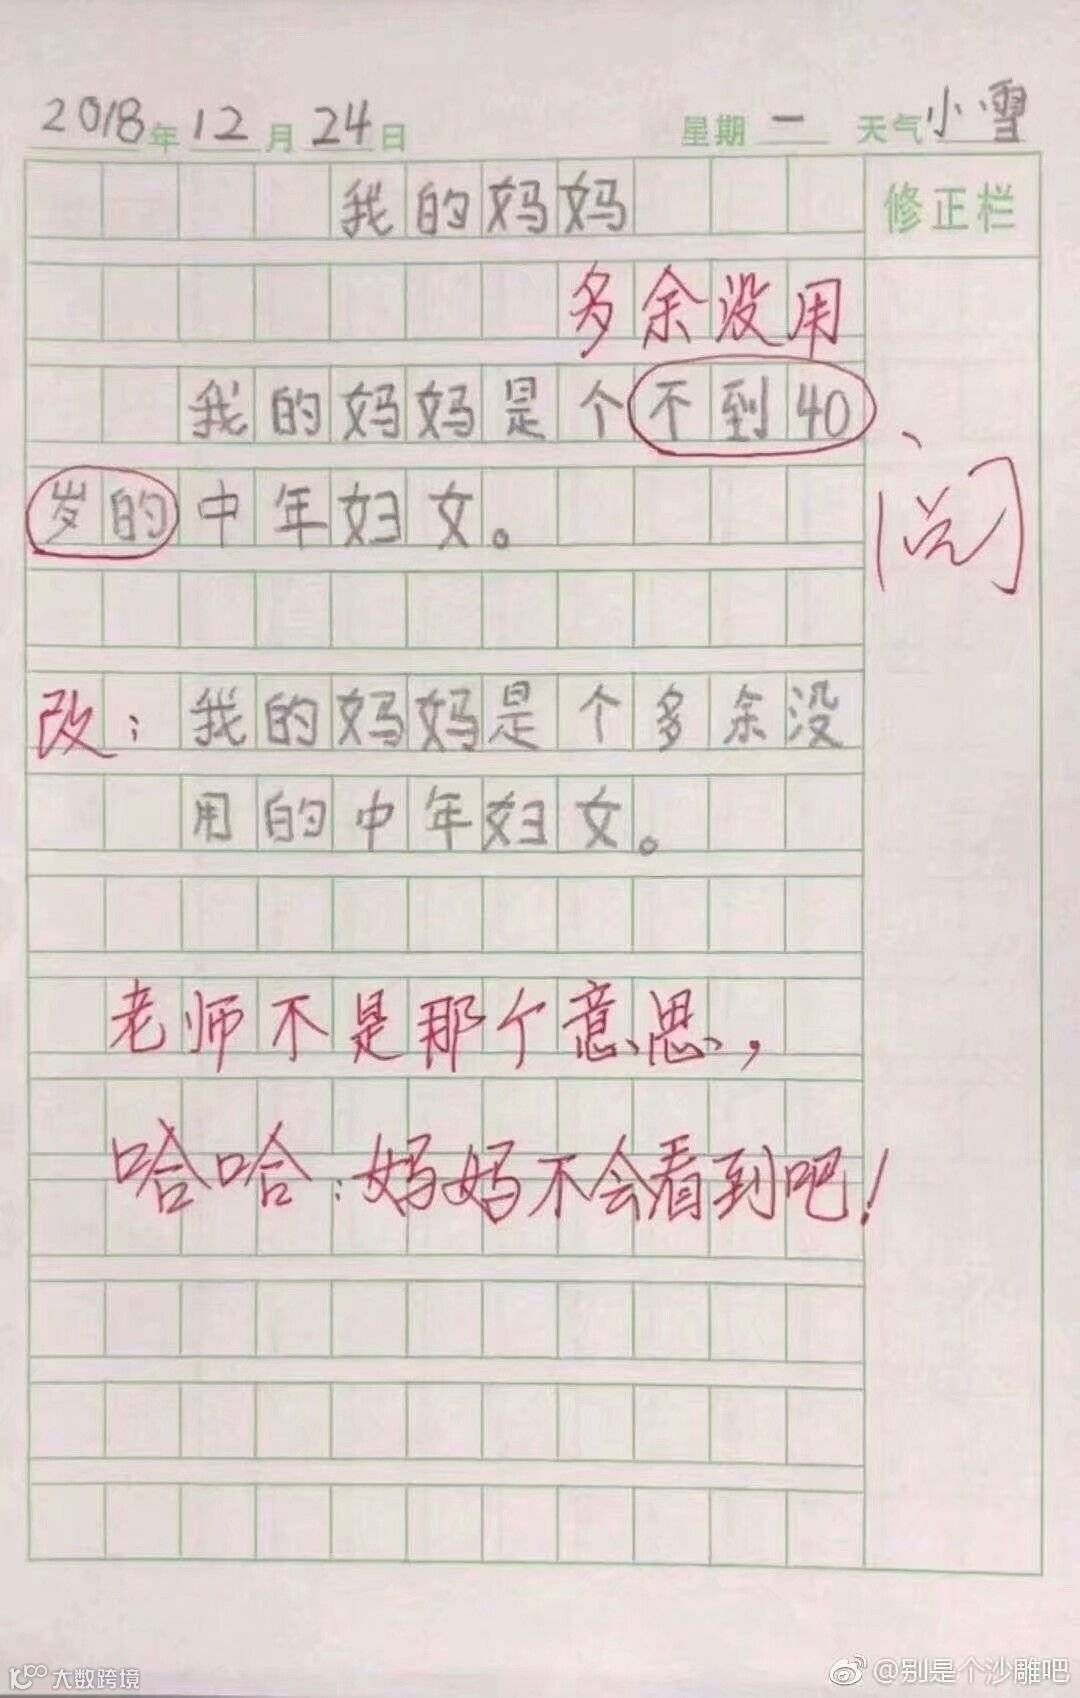 2018年12月24日 星期一 天气小雪
我的妈妈 修正栏
多余没用
我的妈妈是个不到40
岁的中年妇女。
阅
改:我的妈妈是个多余没
用的中年妇女。
老师不是那个意思,
哈哈:妈妈不会看到吧!
大数跨境
@别是个沙雕吧